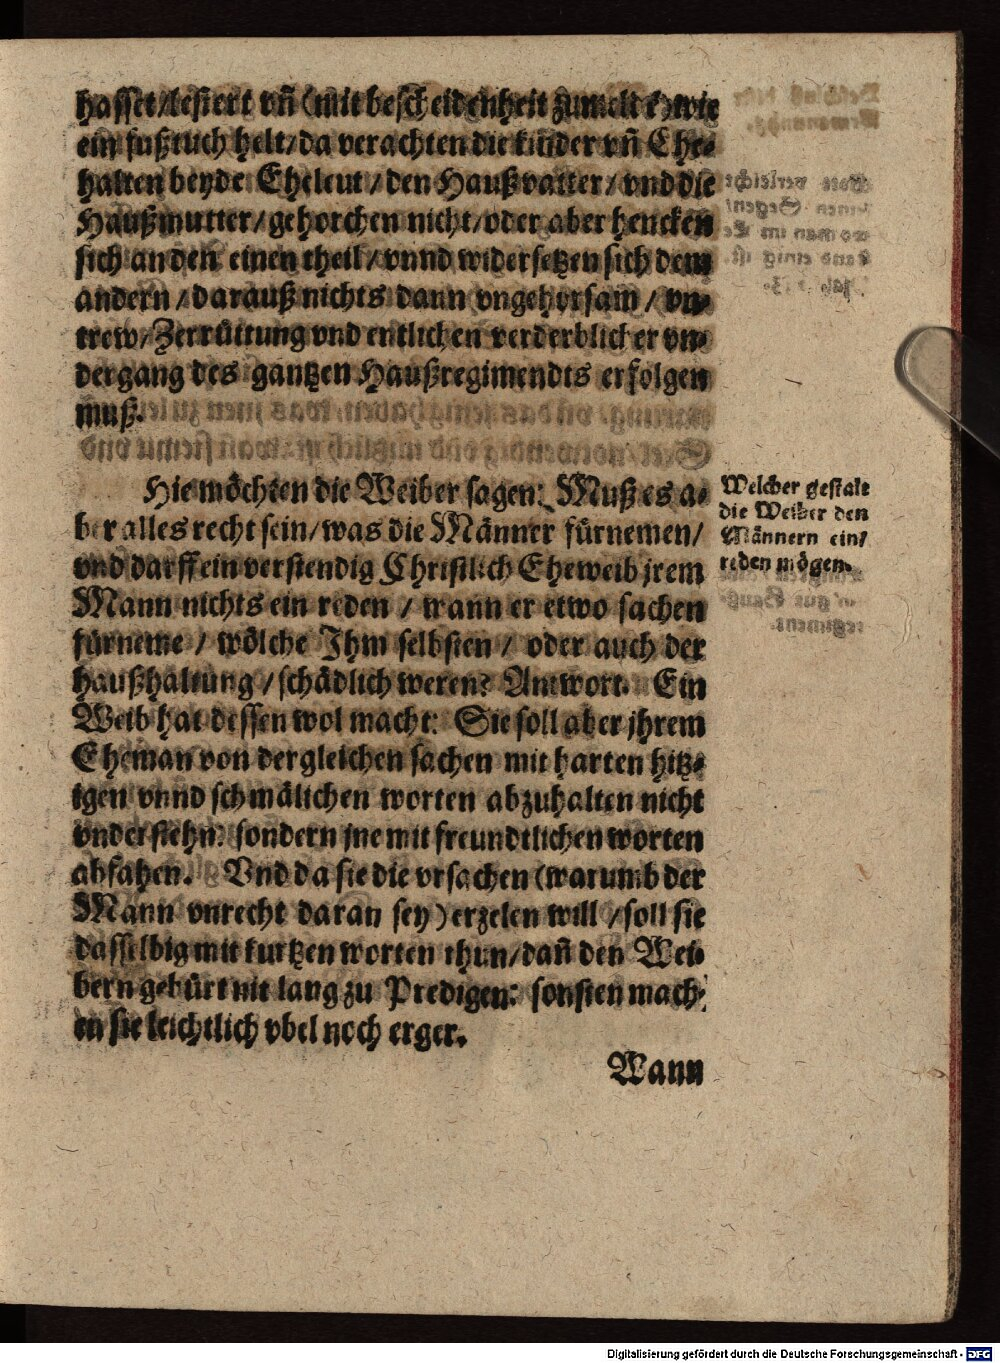 hasset/lestert vñ (mit bescheidenheit zumelde) wie
ein fußtuch helt/da verachten die kinder vñ Ehe-
halten beyde Eheleut/den Haußvatter/vnd die
Haußmutter/gehorchen nicht/oder aber hencken
sich an den einen theil/vnnd widersetzen sich dem
andern/darauß nichts dann vngehorsam/vn-
trew/Zerrüttung vnd entlichen verderblicher vn-
dergang des gantzen Haußregimendts erfolgen
muß.
Hie möchten die Weiber sagen: Muß es a-
ber alles recht sein/was die Männer fürnemen/
vnd darff ein verstendig Christlich Eheweib jrem
Mann nichts ein reden/wann er etwo sachen
fürneme/wölche Ihm selbsten/oder auch der
haußhaltung/schädlich weren? Antwort. Ein
Weib hat dessen wol macht: Sie soll aber jhrem
Eheman von dergleichen sachen mit harten hitz-
igen vnnd schmälichen worten abzuhalten nicht
vnderstehn: sondern jne mit freundtlichen worten
abfahen. Vnd da sie die vrsachen (warumb der
Mann vnrecht daran sey) erzelen will/soll sie
dasselbig mit kurtzen worten thun/dañ den Wei-
bern gebürt nit lang zu Predigen: sonsten mach-
en sie leichtlich vbel noch erger.
Wann
Welcher gestalt
die Weiber den
Männern ein/
reden mögen.
Digitalisierung gefördert durch die Deutsche Forschungsgemeinschaft - DFG